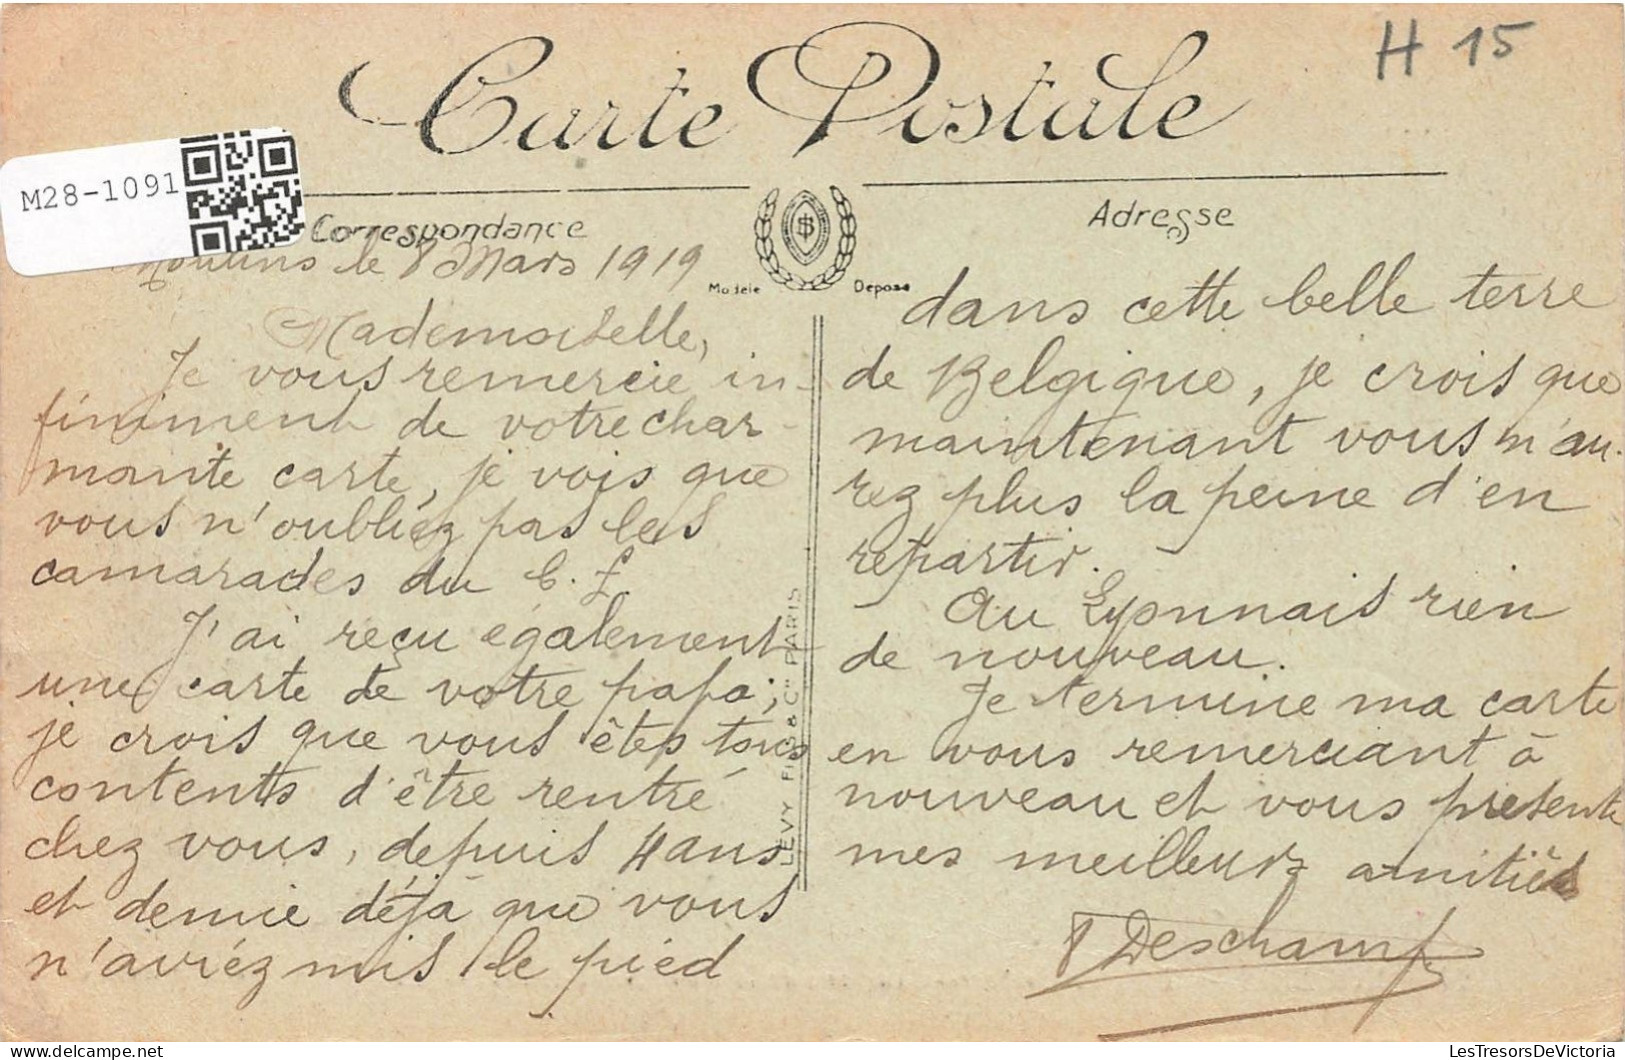 H 15
Carte Postale
M28-1091
Correspondance
Adresse
Moulins le 8 Mars 1919
Modèle Déposé
Mademoiselle,
Je vous remercie in-
finiment de votre char-
mante carte, je vois que
vous n'oubliez pas les
camarades du C. L
J'ai reçu également
une carte de votre papa ;
je crois que vous êtes tous
contents d'être rentré
chez vous, depuis 4 ans
et demie déjà que vous
n'aviéz mis le pied
LEVY FILS & Cie PARIS
dans cette belle terre
de Belgique, je crois que
maintenant vous n'au-
rez plus la peine d'en
repartir.
Au Lyonnais rien
de nouveau.
Je termine ma carte
en vous remerciant à
nouveau et vous présente
mes meilleurs amitiés
Deschamps
LesTresorsDeVictoria
delcampe.net